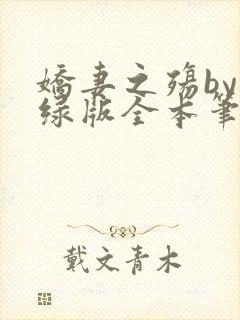 嬌妻之殤by
绿版全本筆
戴文青木